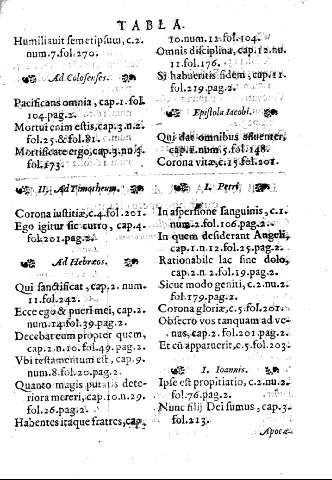 TABLA.
Humiliauit semetipsuu, c.2.
num.7.fol.270.
Ad Colosenses.
Pacificans omnia, cap.1.fol.
104.pag.2.
Mortui enim estis, cap.3.n.2.
fol.25.& fol.81.
Mortificate ergo, cap.3.nu.5.
fol.173.
II. Ad Timotheum.
Corona iustitiæ, c.4.fol.201.
Ego igitur sic curro, cap.4.
fol.201.pag.2.
Ad Hebræos.
Qui sanctificat, cap.2.num.
11.fol.242.
Ecce ego & pueri mei, cap.2.
num.14.fol.39.pag.2.
Decebat eum propter quem,
cap.2.n.10.fol.49.pag.2.
Vbi testamentum est, cap.9.
num.8.fol.20.pag.2.
Quanto magis putatis dete-
riora mereri, cap.10.n.29.
fol.26.pag.2.
Habentes itaque fratres, cap.
10.num.12.fol.104.
Omnis disciplina, cap.12.nu.
11.fol.176.
Si habueritis fidem, cap.11.
fol.219.pag.2.
Epistola Iacobi.
Qui dat omnibus affluenter,
cap.1.num.5.fol.148.
Corona vitæ, c.15.fol.201.
I. Petri.
In aspersione sanguinis, c.1.
num.2.fol.106.pag.2.
In quem desiderant Angeli,
cap.1.n.12.fol.25.pag.2.
Rationabile lac sine dolo,
cap.2.n.2.fol.19.pag.2.
Sicut modo geniti, c.2.nu.2.
fol.179.pag.2.
Corona gloriæ, c.5.fol.201.
Obsecro vos tanquam ad ve-
nas, cap.2.fol.201.pag.2.
Et cū apparuerit, c.5.fol.203.
I. Ioannis.
Ipse est propitiatio, c.2.nu.2.
fol.76.pag.2.
Nunc filij Dei sumus, cap.3.
fol.213.
Apoca-